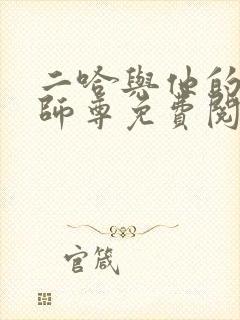 二哈與他的
師尊免費閱
官箴